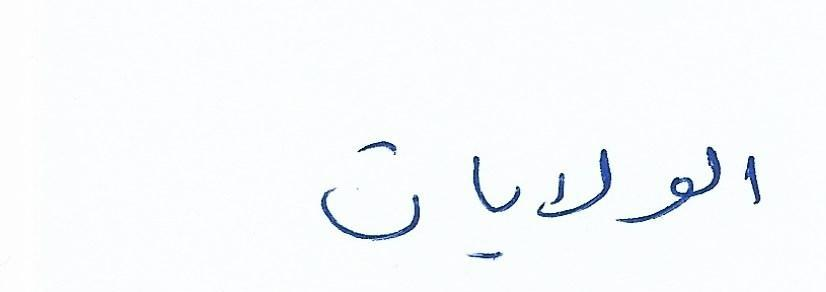 الولايات